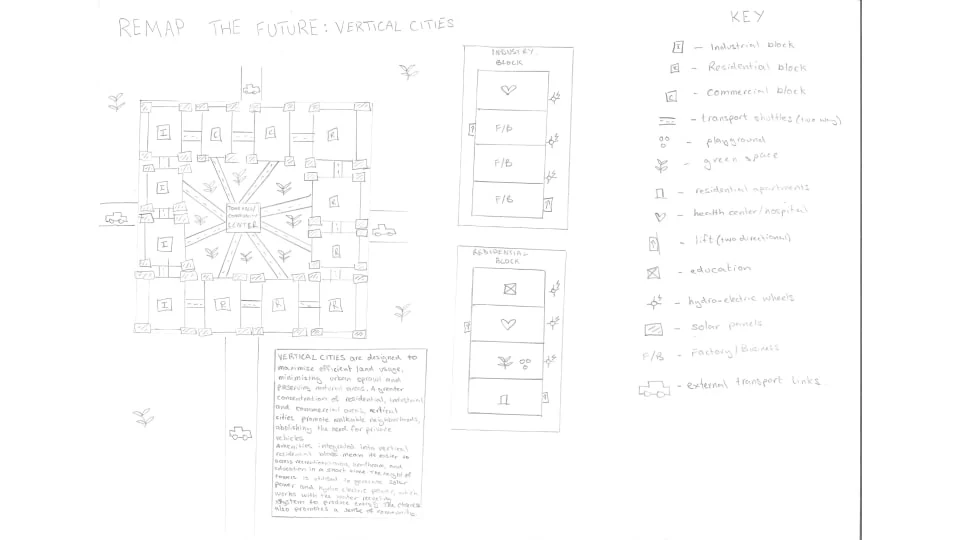 REMAP THE FUTURE: VERTICAL CITIES
I
C
C
R
I
R
I
R
I
R
R
R
TOWN HALL/
COMMUNITY
CENTER
VERTICAL CITIES are designed to
maximise efficient land usage,
minimising urban sprawl and
preserving natural areas. A greater
concentration of residential, industrial
and commercial areas, vertical
cities promote walkable neighbourhoods,
abolishing the need for private
vehicles.
Amenities integrated into vertical
residential blocks mean its easier to
access recreational areas, healthcare, and
education in a short time. The height of
towers is utilised to generate solar
power and hydro electric power, which
works with the water
system to produce energy. The
also promotes a sense of community.
INDUSTRY
BLOCK
F/B
F/B
F/B
RESIDENTIAL
BLOCK
KEY
I - Industrial block
R - Residential block
C - commercial block
- transport shuttles (two way)
- playground
- green space
- residential apartments
- health center/hospital
- lift (two directional)
- education
- hydro-electric wheels
- solar panels
F/B - Factory/Business
- external transport links.